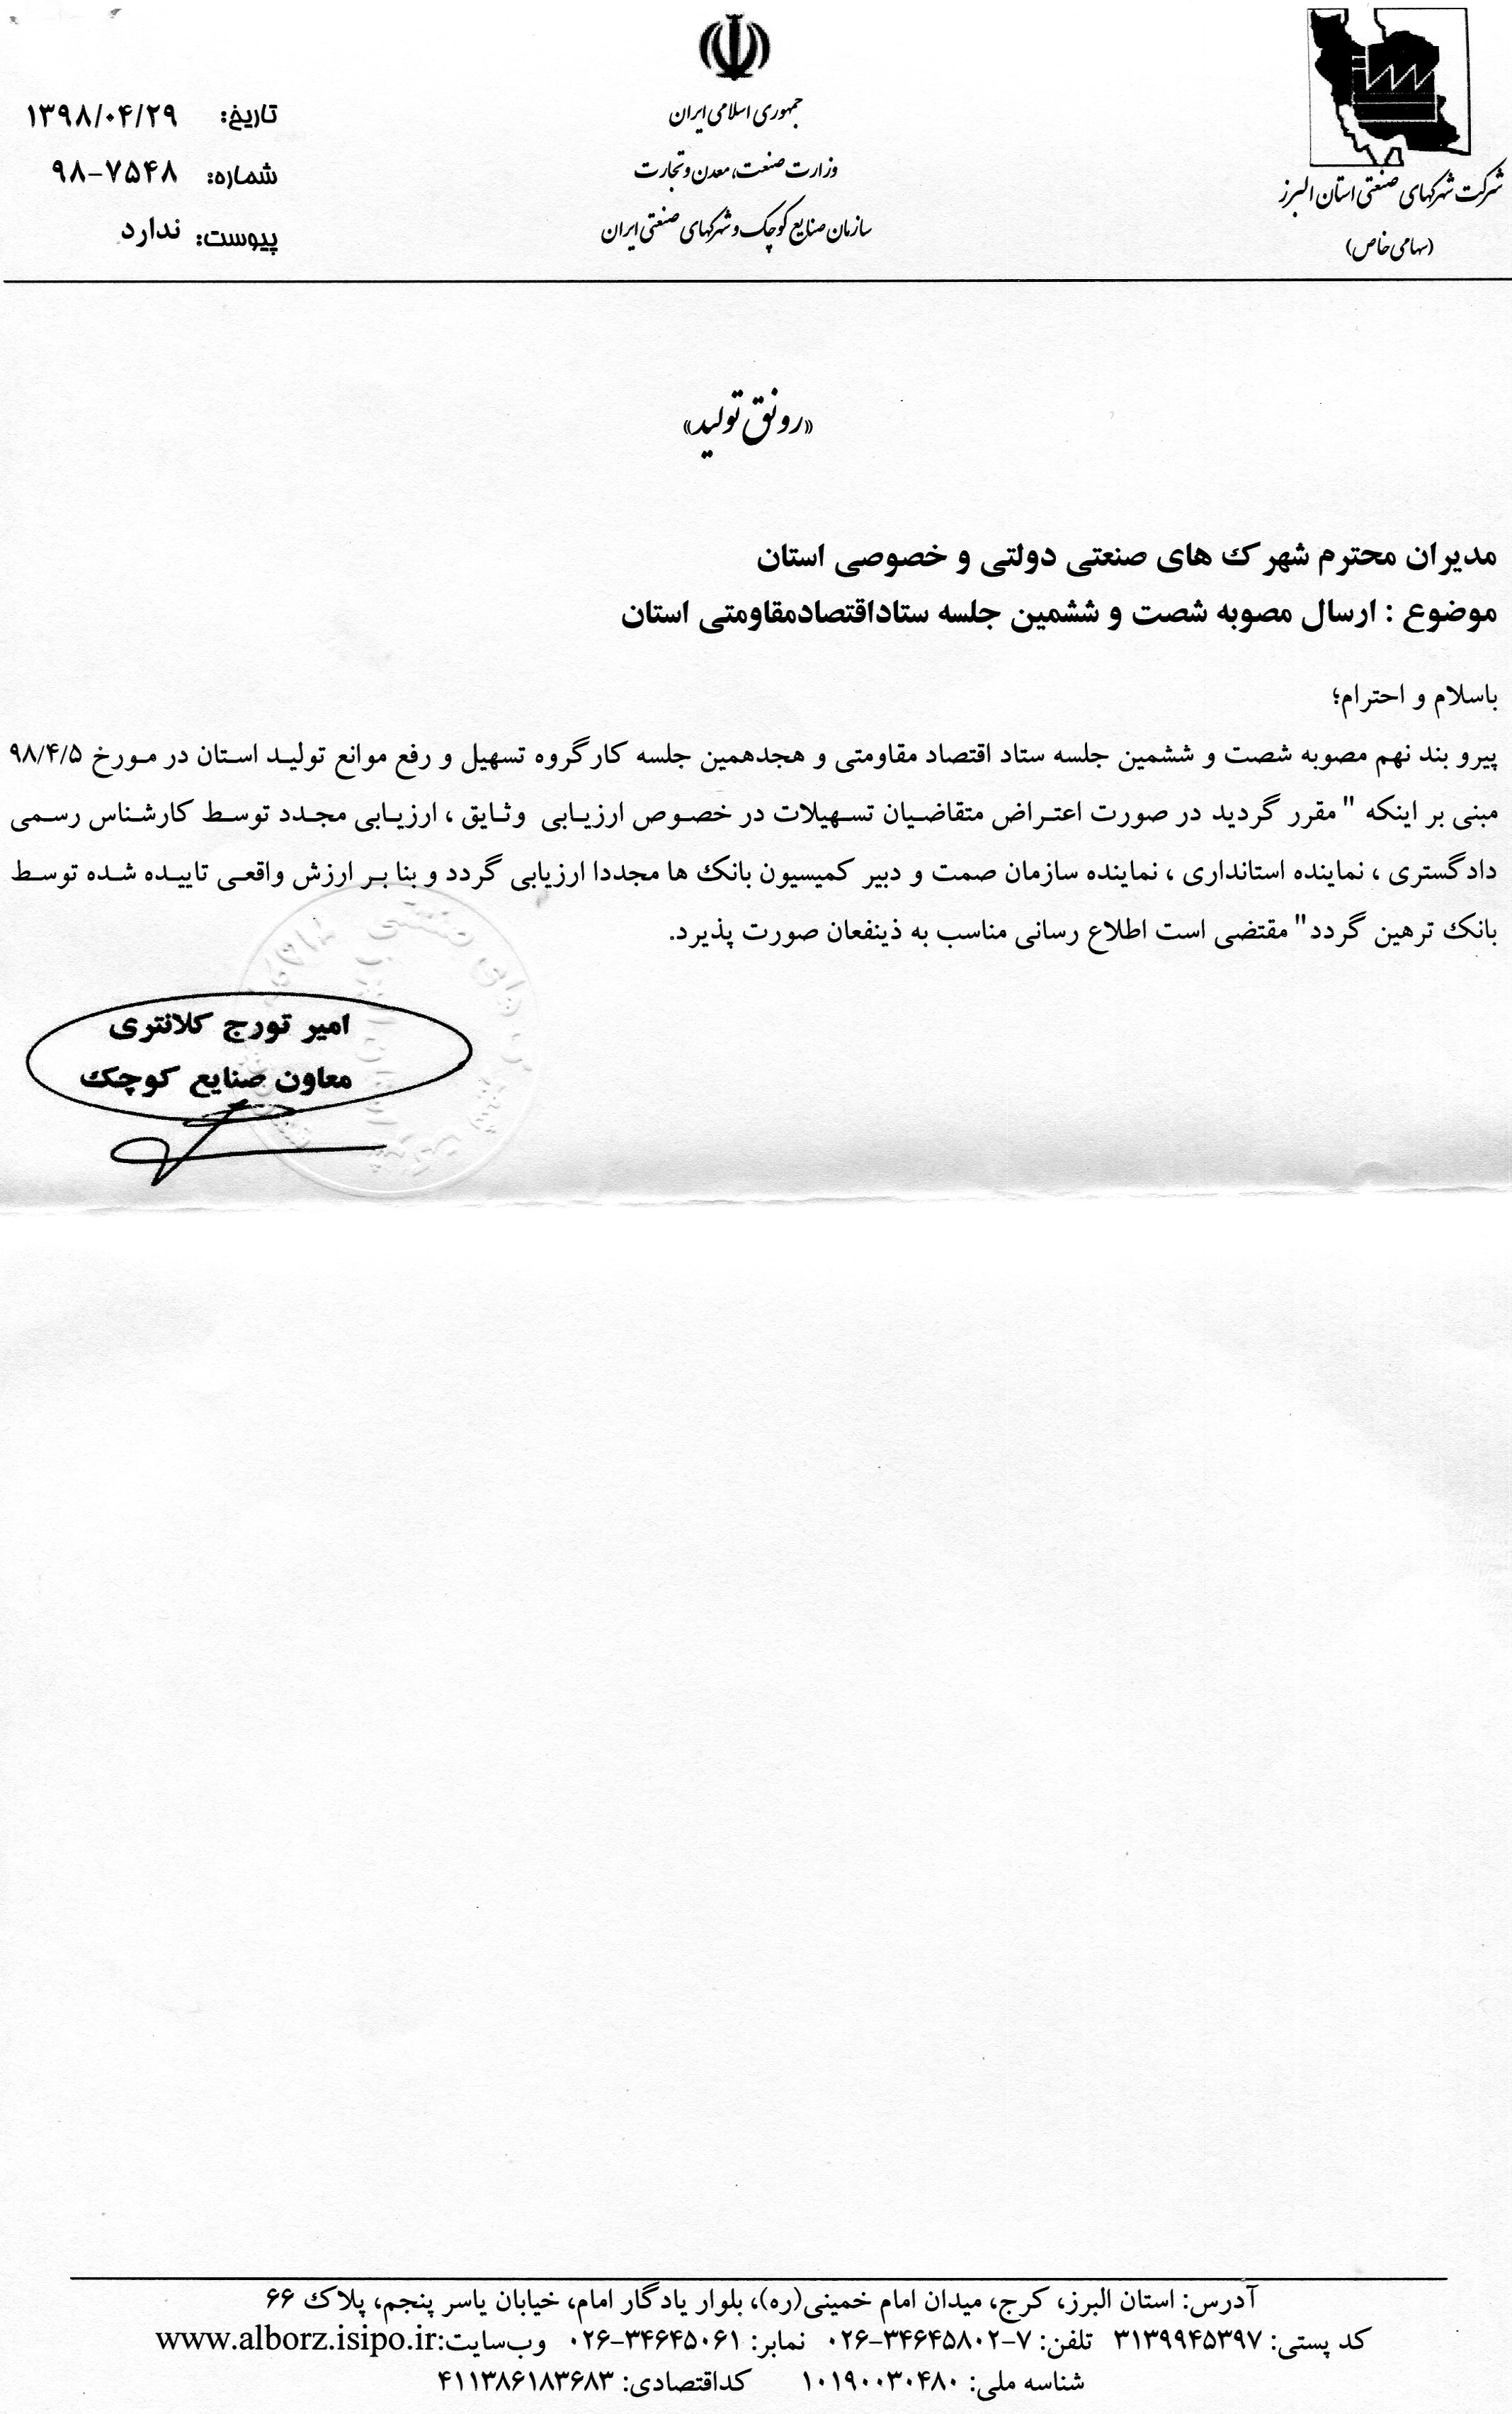 شرکت شهرکهای صنعتی استان البرز
(سهامی خاص)
جمهوری اسلامی ایران
وزارت صنعت، معدن و تجارت
سازمان صنایع کوچک و شهرکهای صنعتی ایران
تاریخ: ۱۳۹۸/۰۴/۲۹
شماره: ۹۸-۷۵۴۸
پیوست: ندارد
«رونق تولید»
مدیران محترم شهرک های صنعتی دولتی و خصوصی استان
موضوع : ارسال مصوبه شصت و ششمین جلسه ستاداقتصادمقاومتی استان
باسلام و احترام؛
پیرو بند نهم مصوبه شصت و ششمین جلسه ستاد اقتصاد مقاومتی و هجدهمین جلسه کارگروه تسهیل و رفع موانع تولید استان در مورخ ۹۸/۴/۵
مبنی بر اینکه " مقرر گردید در صورت اعتراض متقاضیان تسهیلات در خصوص ارزیابی وثایق ، ارزیابی مجدد توسط کارشناس رسمی
دادگستری ، نماینده استانداری ، نماینده سازمان صمت و دبیر کمیسیون بانک ها مجددا ارزیابی گردد و بنا بر ارزش واقعی تاییده شده توسط
بانک ترهین گردد" مقتضی است اطلاع رسانی مناسب به ذینفعان صورت پذیرد.
امیر تورج کلانتری
معاون صنایع کوچک
آدرس: استان البرز، کرج، میدان امام خمینی(ره)، بلوار یادگار امام، خیابان یاسر پنجم، پلاک ۶۶
کد پستی: ۳۱۳۹۹۴۵۳۹۷ تلفن: ۷-۳۴۶۴۵۸۰۲-۰۲۶ نمابر: ۳۴۶۴۵۰۶۱-۰۲۶ وب‌سایت:www.alborz.isipo.ir
شناسه ملی: ۱۰۱۹۰۰۳۰۴۸۰ کداقتصادی: ۴۱۱۳۸۶۱۸۳۶۸۳